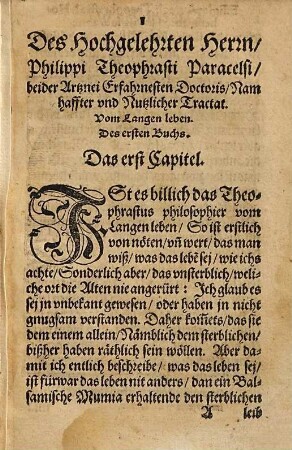 1
Des Hochgelehrten Herrn/
Philippi Theophrasti Paracelsi/
beider Artznei Erfahrnesten Doctoris/ Nam
haffter vnd Nutzlicher Tractat.
Vom Langen leben.
Des ersten Buchs.
Das erst Capitel.
ISt es billich das Theo-
phrastus philosophier vom
Langen leben/ So ist erstlich
von nöten/ vñ wert/ das man
wiß/ was das lebẽ sej/ wie ichs
achte/ Sonderlich aber/ das vnsterblich/ weli-
che ort die Alten nie angerürt: Ich glaub es
sej jn vnbekant gewesen/ oder haben jn nicht
gnugsam verstanden. Daher kom̃ets/ das sie
dem einem allein/ Nämblich dem sterblichen/
bißher haben räthlich sein wöllen. Aber da-
mit ich entlich beschreibe/ was das leben sej/
ist fürwar das leben nit anders/ dan ein Bal-
samische Mumia erhaltende den sterblichen
A leib